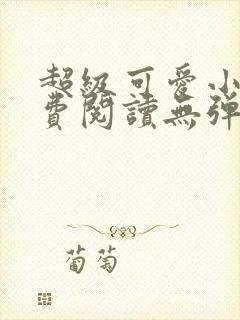 超級可愛小
費閱讀無彈
葡萄